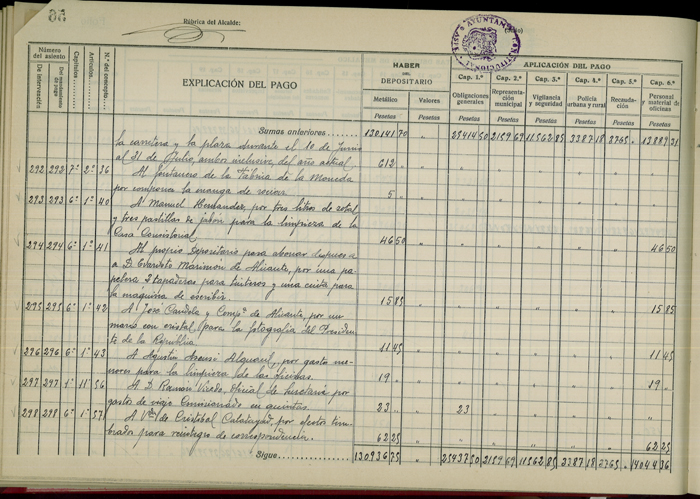 56
Rúbrica del Alcalde:
AYUNTAMIENTO CONSTITUCIONAL
Número del asiento
De intervención
Del mandamiento de pago
Capítulos
Artículos
N.º del concepto
EXPLICACIÓN DEL PAGO
HABER DEL DEPOSITARIO
Metálico
Valores
Pesetas
Pesetas
APLICACIÓN DEL PAGO
Cap. 1.º Cap. 2.º Cap. 3.º Cap. 4.º Cap. 5.º Cap. 6.º
Obligaciones generales
Representación municipal
Vigilancia y seguridad
Policía urbana y rural
Recaudación
Personal y material de oficinas
Pesetas Pesetas Pesetas Pesetas Pesetas Pesetas
Sumas anteriores 130.141 70 " 25414 50 2159 69 11562 85 3387 18 2765 " 13889 31
la carretera y la plaza durante el 10 de Junio
al 31 de Julio, ambos inclusive, del año actual. 612 "
292 292 7º 2º 36 Al fontanero de la Fábrica de la Moneda
por componer la manga de riegos. 5 "
293 293 6º 1º 40 A Manuel Hernández, por tres litros de zotal
y tres pastillas de jabón para la limpieza de la
Casa Consistorial. 46 50 46 50
294 294 6º 1º 41 Al propio Depositario para abonar despues a
a D. Evaristo Marimón de Alicante, por una pa-
pelera 2 tapaderas para tinteros y una cinta para
la maquina de escribir. 15 85 15 85
295 295 6º 1º 42 A José Candela y Compª de Alicante, por un
marco con cristal para la fotografia del Presiden-
te de la República. 11 45 11 45
296 296 6º 1º 43 A Agustín Asensi Alguacil, por gastos me-
nores para la limpieza de las oficinas. 19 " 19 "
297 297 1º 11º 56 A D. Ramón Oficial de Secretaría por
gastos de viaje Comisionado en quintas. 23 " 23
298 298 6º 1º 57 A Vda de Cristóbal Calatayud, por efectos tim-
brados para reintegro de correspondencia. 62 25 62 25
Sigue 130936 75 25437 50 2159 69 11562 85 3387 18 2765 " 14044 36